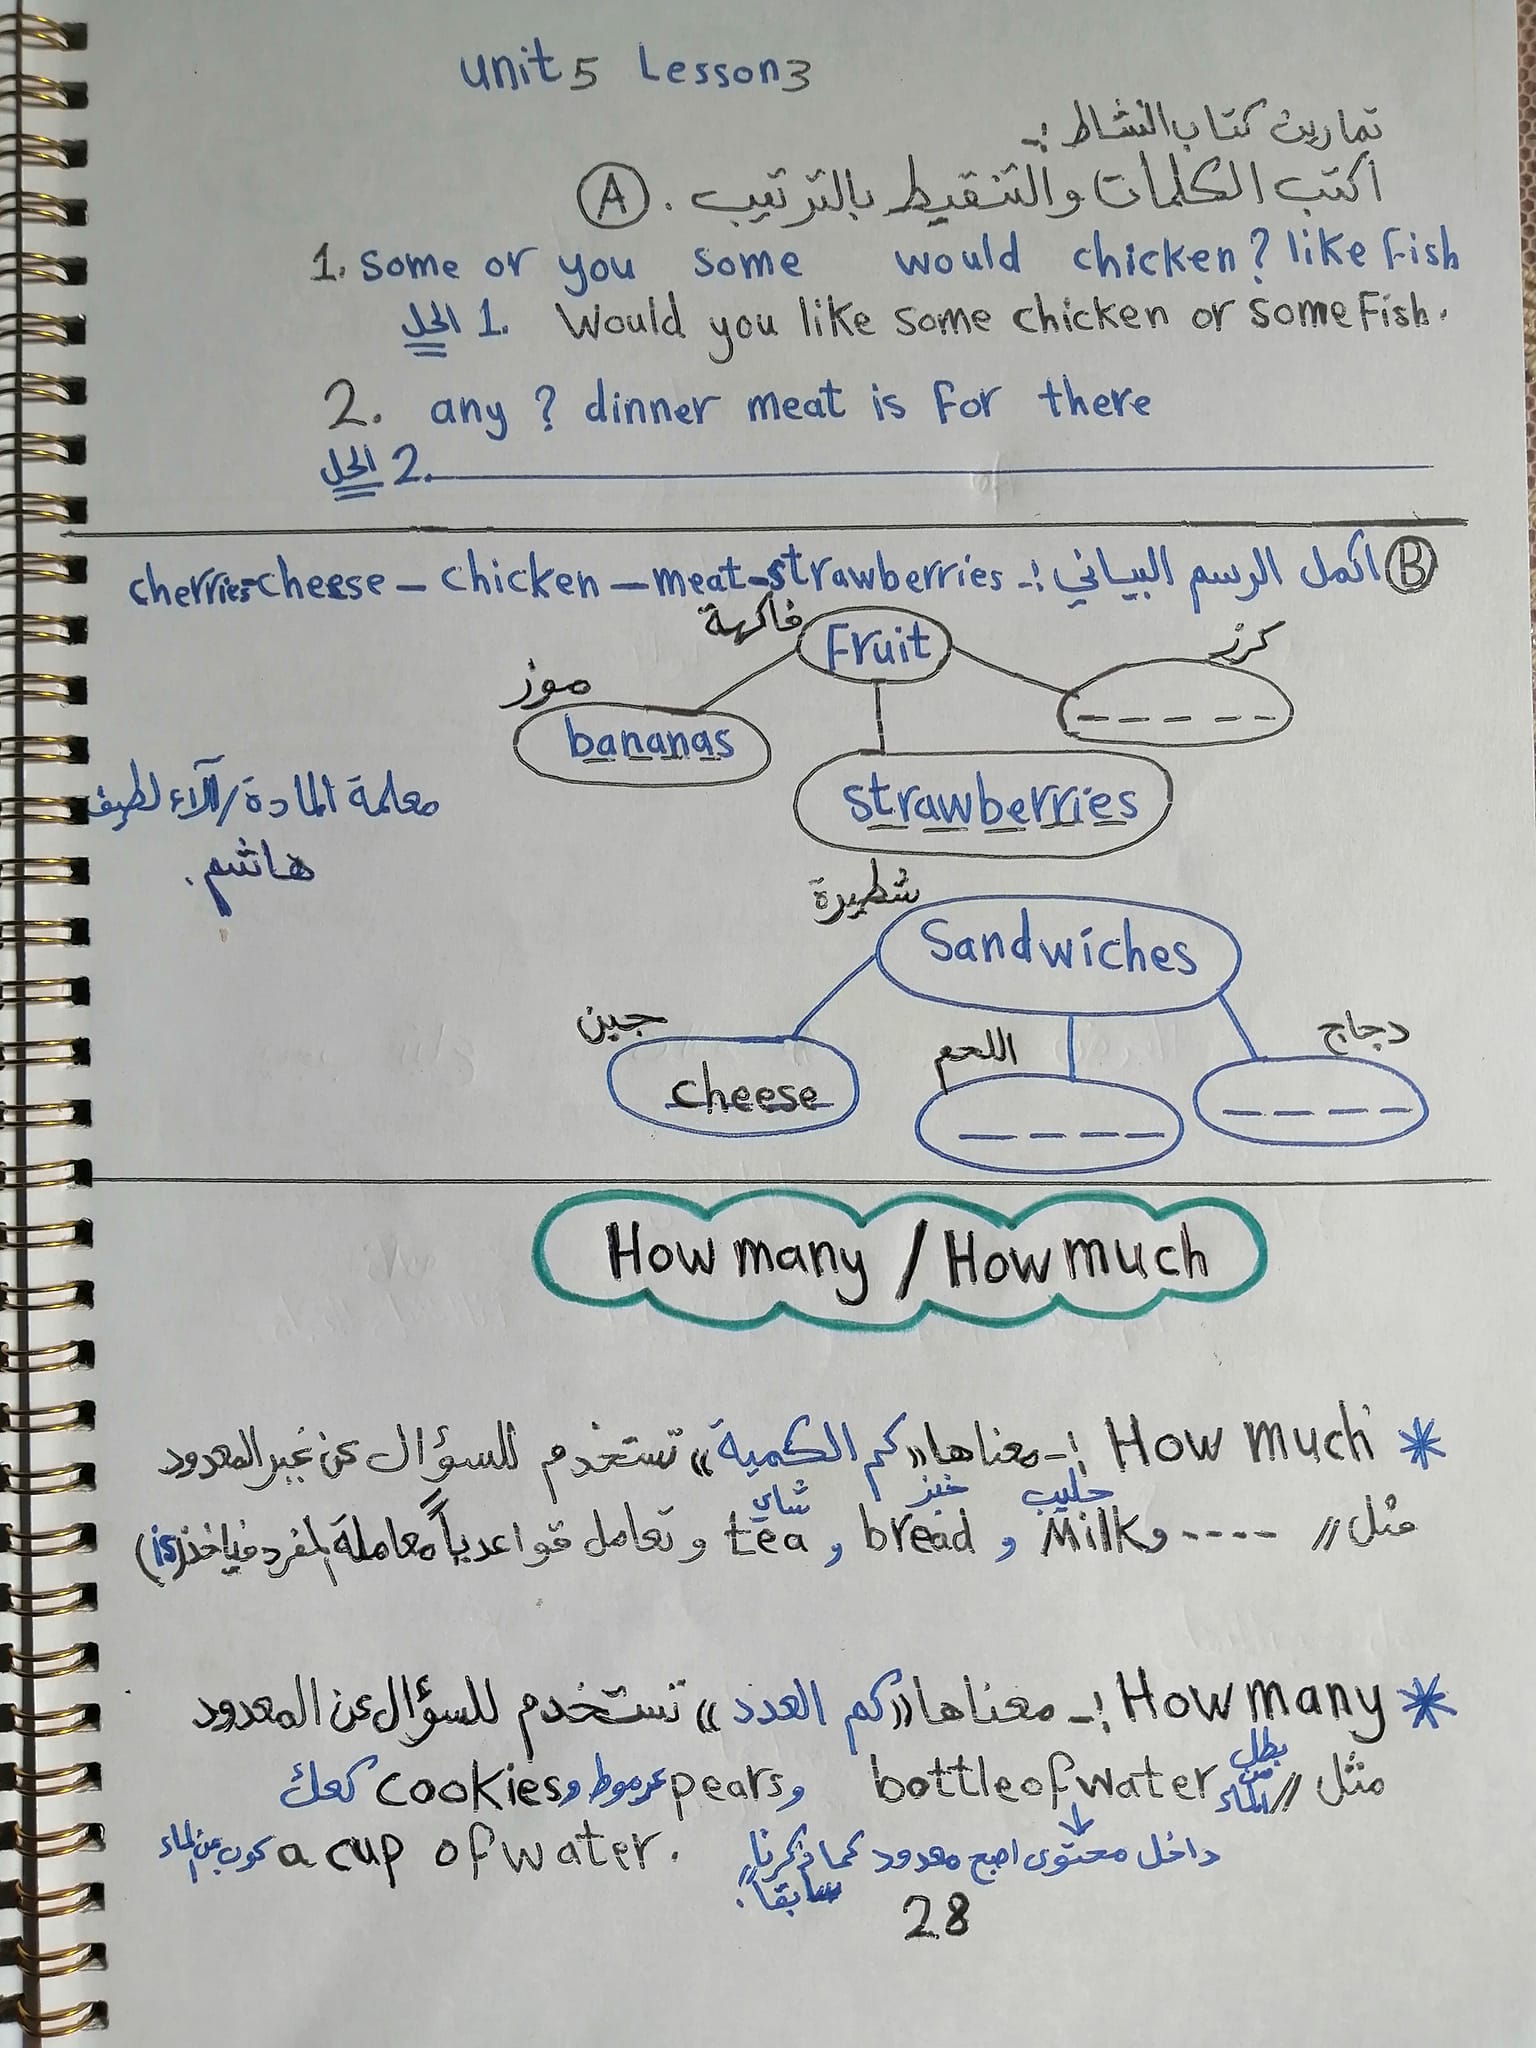 Unit 5 Lesson 3
تمارين كتاب النشاط :-
اكتب الكلمات والتنقيط بالترتيب . A
1. some or you some would chicken? like fish
الحل 1. Would you like some chicken or some fish.
2. any ? dinner meat is for there
الحل 2.
B اكمل الرسم البياني :- cherries-cheese - chicken - meat - strawberries
فاكهة
Fruit
كرز
موز
bananas
strawberries
معلمة المادة / آلاء لطيف
هاشم .
شطيرة
Sandwiches
جبن
cheese
اللحم
دجاج
How many / How much
* How much :- معناها «كم الكمية» تستخدم للسؤال عن غير المعدود
حليب خبز شاي
مثل // ---- و Milk و bread و tea و تعامل قواعدياً معاملة المفرد فياخذ (is)
* How many :- معناها «كم العدد» تستخدم للسؤال عن المعدود
مثل // بطل من الماء bottle of water و pears عرموط و cookies كعك
داخل محتوى اصبح معدود كما ذكرنا سابقاً . a cup of water. كوب من الماء
28